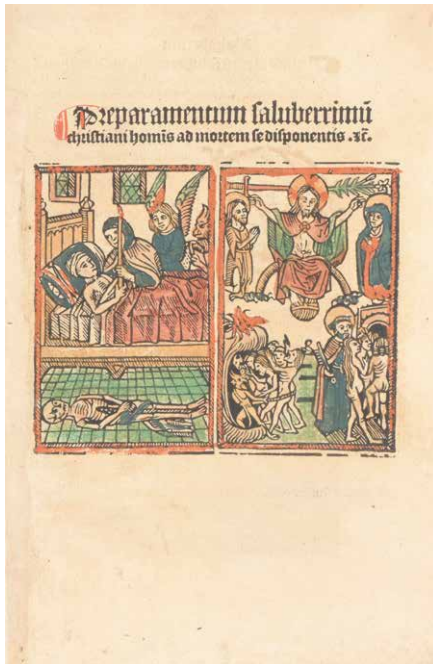 Preparamentum saluberrimū
christiani homīs ad mortem se disponentis .⁊c̄.